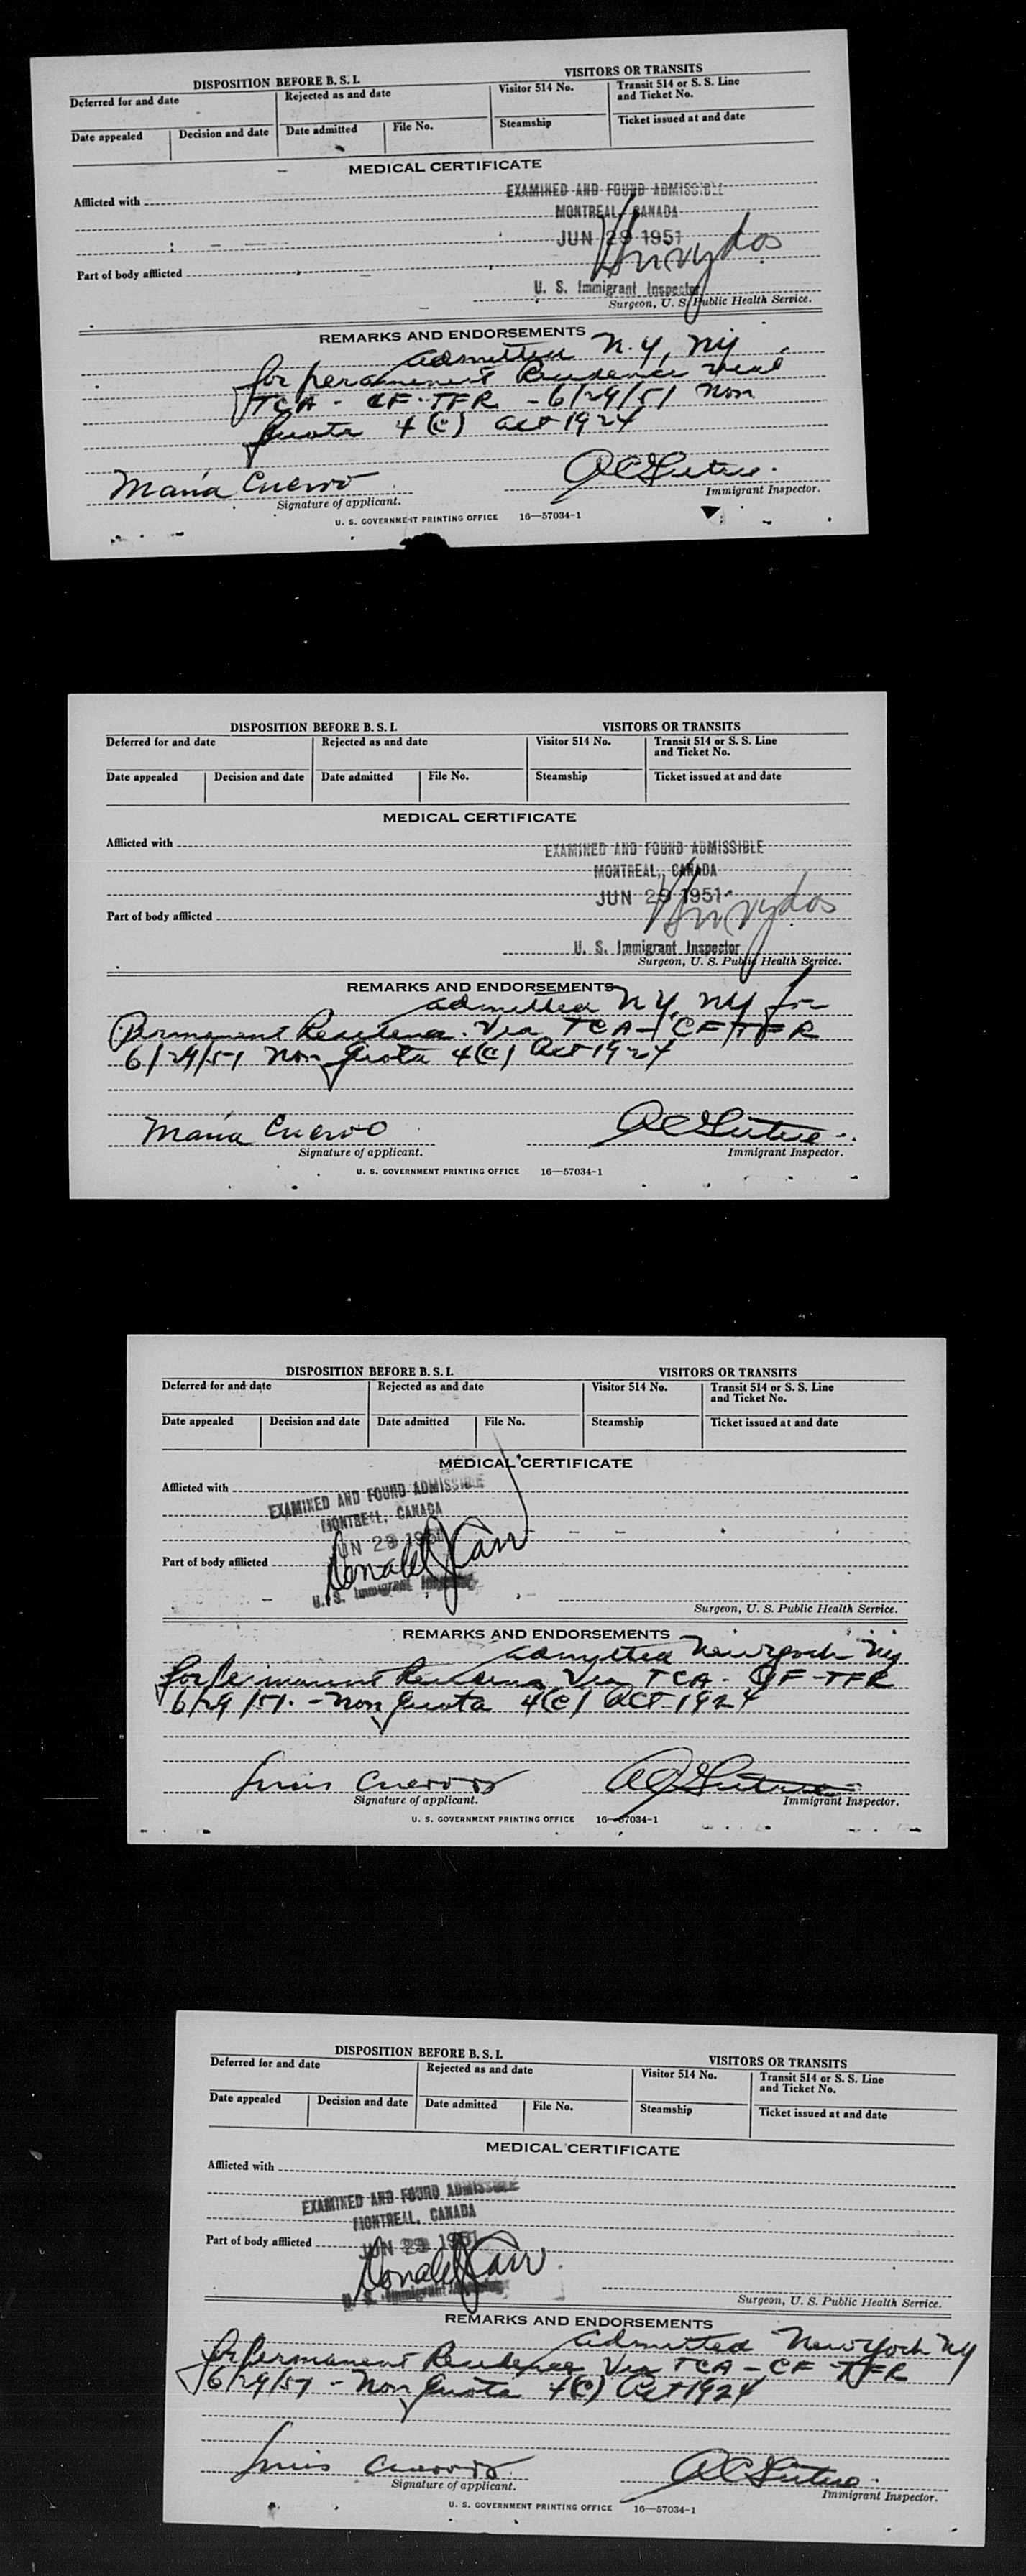 DISPOSITION BEFORE B. S. I.
VISITORS OR TRANSITS
Deferred for and date
Rejected as and date
Visitor 514 No.
Transit 514 or S. S. Line
and Ticket No.
Date appealed
Decision and date
Date admitted
File No.
Steamship
Ticket issued at and date
MEDICAL CERTIFICATE
Afflicted with
EXAMINED AND FOUND ADMISSIBLE
MONTREAL, CANADA
JUN 29 1951
Part of body afflicted
U. S. Immigrant Inspector
Surgeon, U. S. Public Health Service.
REMARKS AND ENDORSEMENTS
admitted N.Y, NY
for permanent Residence
TCA - CF-TFR - 6/29/51 Non
Quota 4(c) act 1924
Maria Cuervo
Signature of applicant.
Immigrant Inspector.
U. S. GOVERNMENT PRINTING OFFICE 16—57034-1
DISPOSITION BEFORE B. S. I.
VISITORS OR TRANSITS
Deferred for and date
Rejected as and date
Visitor 514 No.
Transit 514 or S. S. Line
and Ticket No.
Date appealed
Decision and date
Date admitted
File No.
Steamship
Ticket issued at and date
MEDICAL CERTIFICATE
Afflicted with
EXAMINED AND FOUND ADMISSIBLE
MONTREAL, CANADA
JUN 29 1951
Part of body afflicted
U. S. Immigrant Inspector
Surgeon, U. S. Public Health Service.
REMARKS AND ENDORSEMENTS
admitted NY, NY for
Permanent Residence. Via TCA - CF/TFR
6/29/51 Non Quota 4(c) Act 1924
Maria Cuervo
Signature of applicant.
Immigrant Inspector.
U. S. GOVERNMENT PRINTING OFFICE 16—57034-1
DISPOSITION BEFORE B. S. I.
VISITORS OR TRANSITS
Deferred for and date
Rejected as and date
Visitor 514 No.
Transit 514 or S. S. Line
and Ticket No.
Date appealed
Decision and date
Date admitted
File No.
Steamship
Ticket issued at and date
MEDICAL CERTIFICATE
Afflicted with
EXAMINED AND FOUND ADMISSIBLE
MONTREAL, CANADA
JUN 29 1951
Donald J Carr
Part of body afflicted
U. S. Immigrant Inspector
Surgeon, U. S. Public Health Service.
REMARKS AND ENDORSEMENTS
admitted New York NY
for Permanent Residence Via TCA - CF-TFR
6/29/51. - Non Quota 4(c) Act 1924
Luis Cuervo
Signature of applicant.
Immigrant Inspector.
U. S. GOVERNMENT PRINTING OFFICE 16—57034-1
DISPOSITION BEFORE B. S. I.
VISITORS OR TRANSITS
Deferred for and date
Rejected as and date
Visitor 514 No.
Transit 514 or S. S. Line
and Ticket No.
Date appealed
Decision and date
Date admitted
File No.
Steamship
Ticket issued at and date
MEDICAL CERTIFICATE
Afflicted with
EXAMINED AND FOUND ADMISSIBLE
MONTREAL, CANADA
Part of body afflicted
JUN 29 1951
Donald J Carr
U. S. Immigrant Inspector
Surgeon, U. S. Public Health Service.
REMARKS AND ENDORSEMENTS
admitted New York NY
for Permanent Residence Via TCA - CF-TFR
6/29/51 - Non Quota 4(c) Act 1924
Luis Cuervo
Signature of applicant.
Immigrant Inspector.
U. S. GOVERNMENT PRINTING OFFICE 16—57034-1